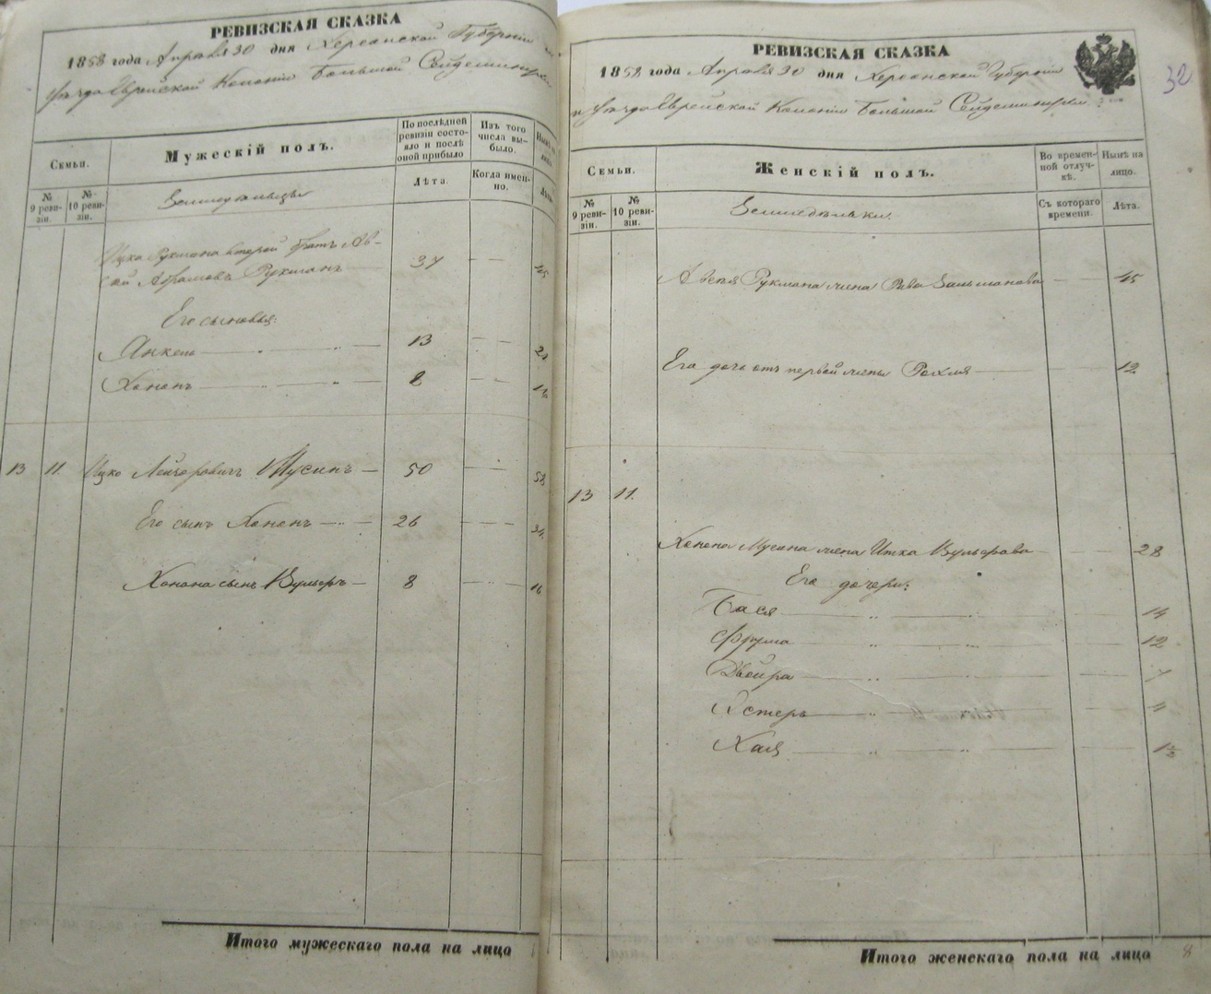 РЕВИЗСКАЯ СКАЗКА
1858 года Апреля 30 дня Херсонской Губернии
уѣзда Еврейской Колоніи Большой Сейдеминухи
Семьи.
Мужескій полъ.
По послѣдней ревизіи состояло и послѣ оной прибыло
Изъ того числа выбыло.
№ 9 ревизіи.
№ 10 ревизіи.
Лѣта.
Когда именно.
Земледѣльцы
Ицка Рукмана второй братъ
Абрамовъ Рукманъ
37
45
Его сыновья:
13
21
Хененъ
8
13 11. Ицко Лейзеровичъ Мусинъ — 50
58
Его сынъ Хененъ — 26
34
Хонона сынъ Вульфъ — 8
16
Итого мужескаго пола на лицо
РЕВИЗСКАЯ СКАЗКА
32
1858 года Апреля 30 дня Херсонской Губерніи
и уѣзда Еврейской Колоніи Большой Сейдеминухи
Семьи.
Женскій полъ.
Во временной отлучкѣ.
Нынѣ на лицо.
№ 9 ревизіи.
№ 10 ревизіи.
Съ котораго времени.
Лѣта.
Земледѣлки.
Рукмана жена Рива Зальманова 45
Его дочь отъ первой жены Рохля 12
13 11.
Хенена Мусина жена Итка Вульфова 28
Его дочери:
Бася 14
Фрума 12
Двейра 7
Естеръ
Хая
Итого женскаго пола на лицо 8